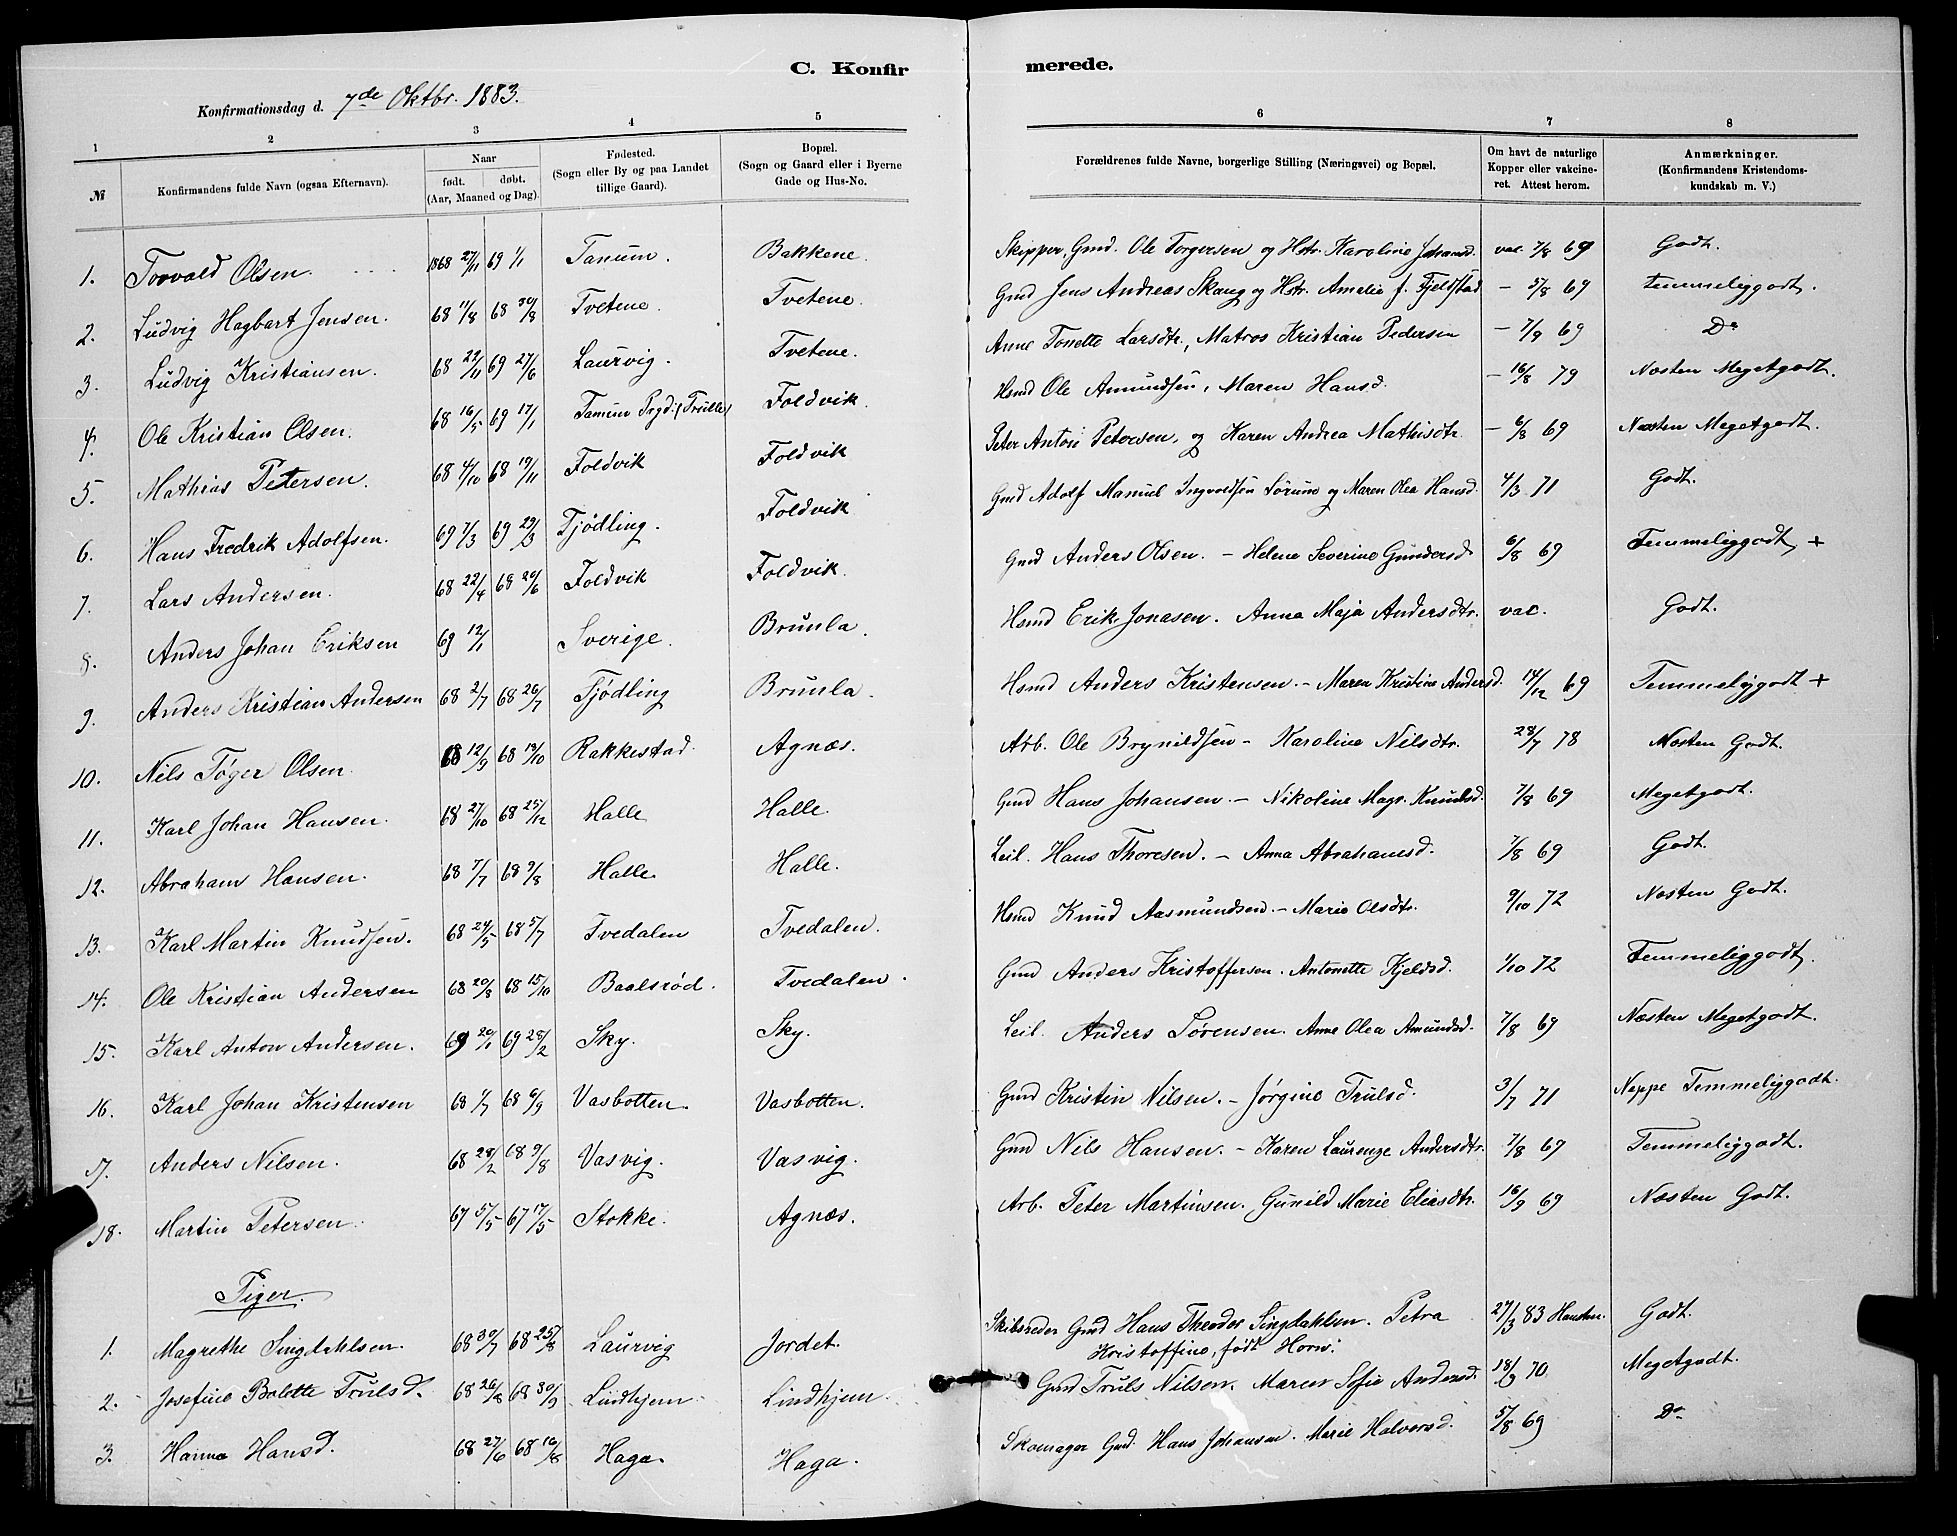 C. Konfirmerede.
Konfirmationsdag d. 7de Oktbr. 1883.
1 2 3 4 5 6 7 8
№ Konfirmandens fulde Navn (ogsaa Efternavn). Naar født. døbt. (Aar, Maaned og Dag). Fødested. (Sogn eller By og paa Landet tillige Gaard). Bopæl. (Sogn og Gaard eller i Byerne Gade og Hus-No. Forældrenes fulde Navne, borgerlige Stilling (Næringsvei) og Bopæl. Om havt de naturlige Kopper eller vakcineret. Attest herom. Anmærkninger. (Konfirmandens Kristendomskundskab m. V.)
1. Torvald Olsen. 1868 27/11 69 1/1 Tanum. Bakkene. Skipper, Gmd. Ole Torgersen og Hstr. Karoline Johansd. vac. 7/8 69 Godt.
2. Ludvig Hagbart Jensen. 68 11/8 68 30/8 Tvetene. Tvetene. Gmd Jens Andreas Skaug og Hstr. Amalie f. Fjeldstad - 5/8 69 Temmeliggodt.
3. Ludvig Kristiansen. 68 22/11 69 27/6 Laurvig. Tvetene. Anne Tonette Larsdtr., Matros Kristian Pedersen - 7/9 69 Do
4. Ole Kristian Olsen. 68 16/5 69 17/1 Tanum Prgd. (Trulle) Foldvik. Hsmd Ole Amundsen, Maren Hansd. - 16/8 79 Næsten Megetgodt.
5. Mathias Petersen. 68 4/10 68 19/11 Foldvik Foldvik Peter Anton Petersen, og Karen Andrea Mathisdtr. - 6/8 69 Næsten Megetgodt.
6. Hans Fredrik Adolfsen. 69 7/3 69 29/3 Tjødling. Foldvik Gmd Adolf Manuel Ingvoldsen Sørum og Maren Olea Hansd. 4/3 71 Godt.
7. Lars Andersen. 68 22/4 68 20/6 Foldvik Foldvik. Gmd Anders Olsen. - Helene Severine Gundersd. 6/8 69 Temmeliggodt +
8. Anders Johan Eriksen 69 12/1 Sverige. Brunla. Hsmd Erik Jonasen. Anna Maja Andersdtr. vac. Godt.
9. Anders Kristian Andersen 68 2/7 68 26/7 Tjødling Brunla. Hsmd Anders Kristensen. - Maren Kristine Andersd. 14/12 69 Temmeliggodt +
10. Nils Tøger Olsen 68 12/9 68 19/10 Rakkestad. Agnæs. Arb. Ole Brynildsen - Karoline Nilsdtr. 28/7 78 Næsten Godt.
11. Karl Johan Hansen. 68 27/10 68 25/12 Halle Halle. Gmd Hans Johansen. - Nikoline Magr. Knudsd. 7/8 69 Megetgodt.
12. Abraham Hansen. 68 7/7 68 9/8 Halle. Halle. Leil. Hans Thoresen. - Anna Abrahamsd. 7/8 69 Godt.
13. Karl Martin Knudsen. 68 24/5 68 5/7 Tvedalen Tvedalen. Hsmd Knud Aasmundsen. - Marie Olsdtr. 9/10 72 Næsten Godt.
14. Ole Kristian Andersen 68 20/8 68 15/10 Baalsrød. Tvedalen. Gmd Anders Kristoffersen. Antonette Kjeldsd. 1/10 72 Temmeliggodt.
15. Karl Anton Andersen. 69 20/1 69 28/2 Sky. Sky. Leil. Anders Sørensen. Anne Olea Amundsd. 7/8 69 Næsten Megetgodt.
16. Karl Johan Kristensen 68 1/7 68 6/9 Vasbotten. Vasbotten. Gmd Kristin Nilsen. - Jørgine Trulsd. 3/7 71 Neppe Temmeliggodt.
17. Anders Nilsen. 68 28/2 68 9/8 Vasvig. Vasvig. Gmd Nils Hansen. - Karen Laurenze Andersdtr. 7/8 67 Temmeliggodt.
18. Martin Petersen. 67 5/5 67 17/5 Stokke. Agnæs. Arb. Peter Martinsen. Gunild Marie Eliasdtr. 16/9 69 Næsten Godt.
Piger.
1. Magrethe Singdahlsen. 68 30/7 68 25/8 Laurvig Jordet. Skibsreder Gmd Hans Theodor Singdahlsen. Petra Kristoffine, født Horn. 27/3 83 Godt.
2. Josefine Bolette Trulsd. 68 26/8 68 30/9 Lindhjem Lindhjem Gmd Truls Nilsen. Maren Sofie Andersd. 18/9 70 Megetgodt.
3. Hanna Hansd. 68 27/6 68 16/8 Haga. Haga. Skomager Gmd. Hans Johansen. Marie Halvorsd. 5/8 69 Do